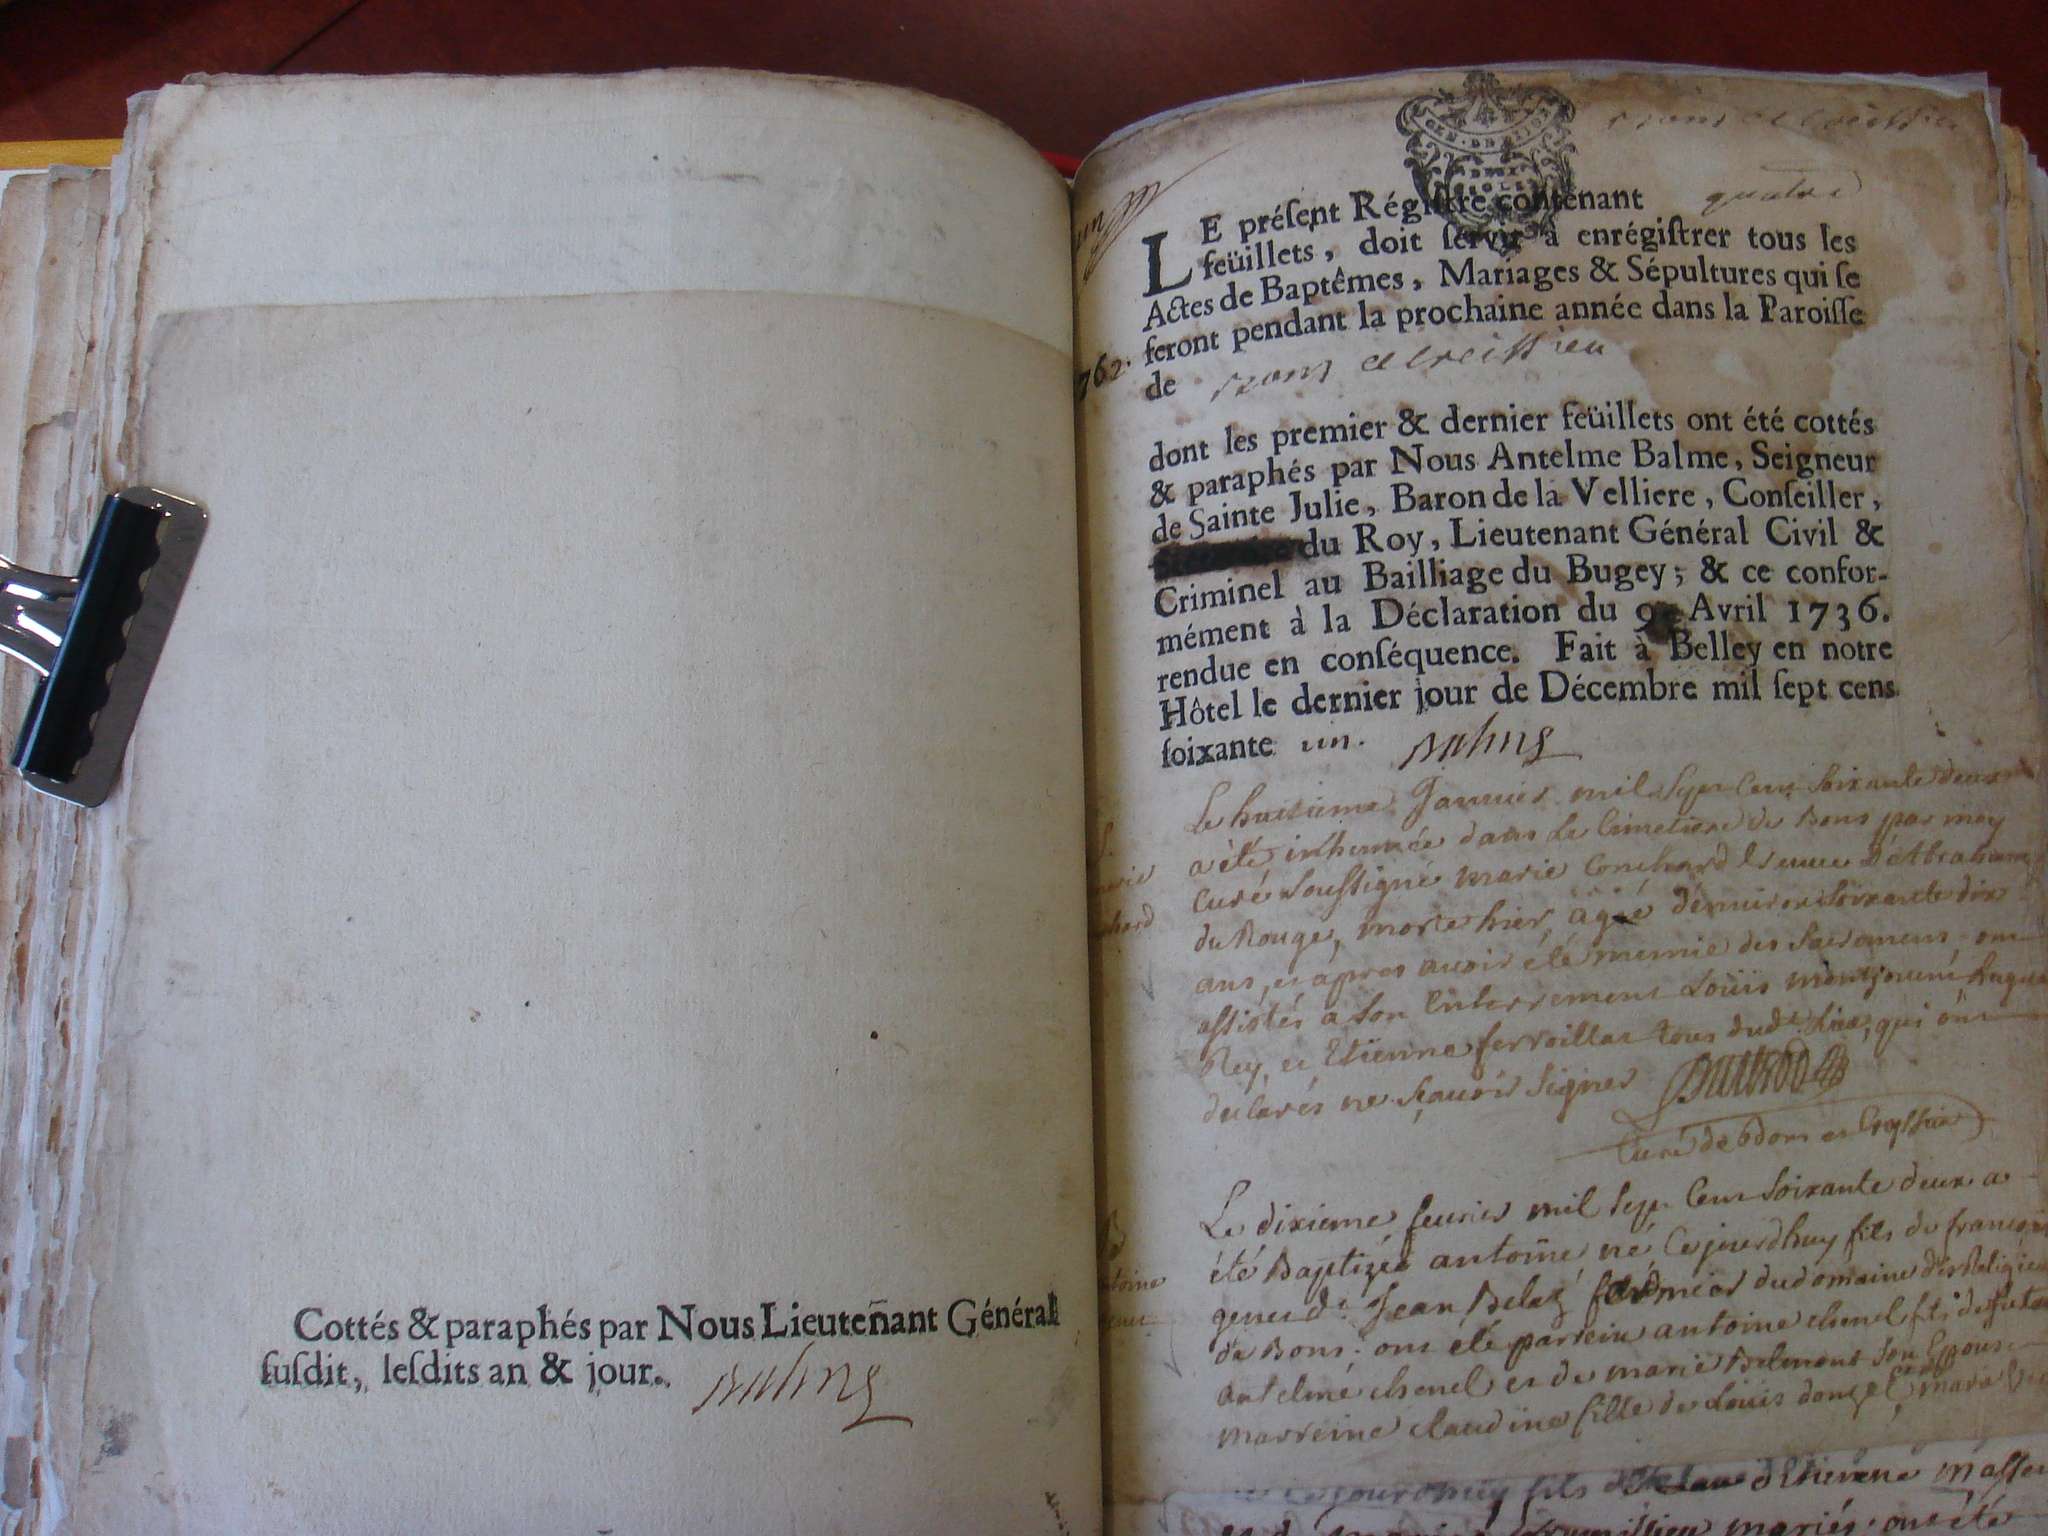 Cottés & paraphés par Nous Lieuteñant Général
ſuſdit, leſdits an & jour.
un
1762.
GEN. DE DIJON
DEUX
SOLS
quatre
LE préſent Régiſtre contenant
feüillets, doit ſervir à enrégiſtrer tous les
Actes de Baptêmes, Mariages & Sépultures qui ſe
feront pendant la prochaine année dans la Paroiſſe
de
dont les premier & dernier feüillets ont été cottés
& paraphés par Nous Antelme Balme, Seigneur
de Sainte Julie, Baron de la Velliere, Conſeiller,
du Roy, Lieutenant Général Civil &
Criminel au Bailliage du Bugey; & ce confor-
mément à la Déclaration du 9 Avril 1736.
rendue en conſéquence. Fait à Belley en notre
Hôtel le dernier jour de Décembre mil ſept cens
ſoixante un.
Le huitieme Janvier mil Sept Cent Soixante deux
a été inhumée dans Le Cimetiere de Bons par moy
Curé Soussigné marie Conchard veuve D'Abraham
du Rouge, morte hier, agée d'environ Soixante dix
ans, et apres avoir été munie des Sacremens ont
assistés a Son Enterrement Loüis montjouvent
Rey, et Etïenne ferroillat tous dud. Lieu, qui ont
declarés ne Sçavoir Signer
Curé de Bons et Creyssieu
Le dixieme fevrier mil Sept Cent Soixante deux a
été Baptizé antoine né Cejourdhuy fils de francoise
et de Jean Belaz fermier du domaine des Religieu
de Bons. ont été parrein antoine chenel fils de
antelme chenel et de marie Belmont Son Epouse
marreine claudine fille de Loüis donzel
Cejourdhuy fils d'Etienne
mariés. ont été